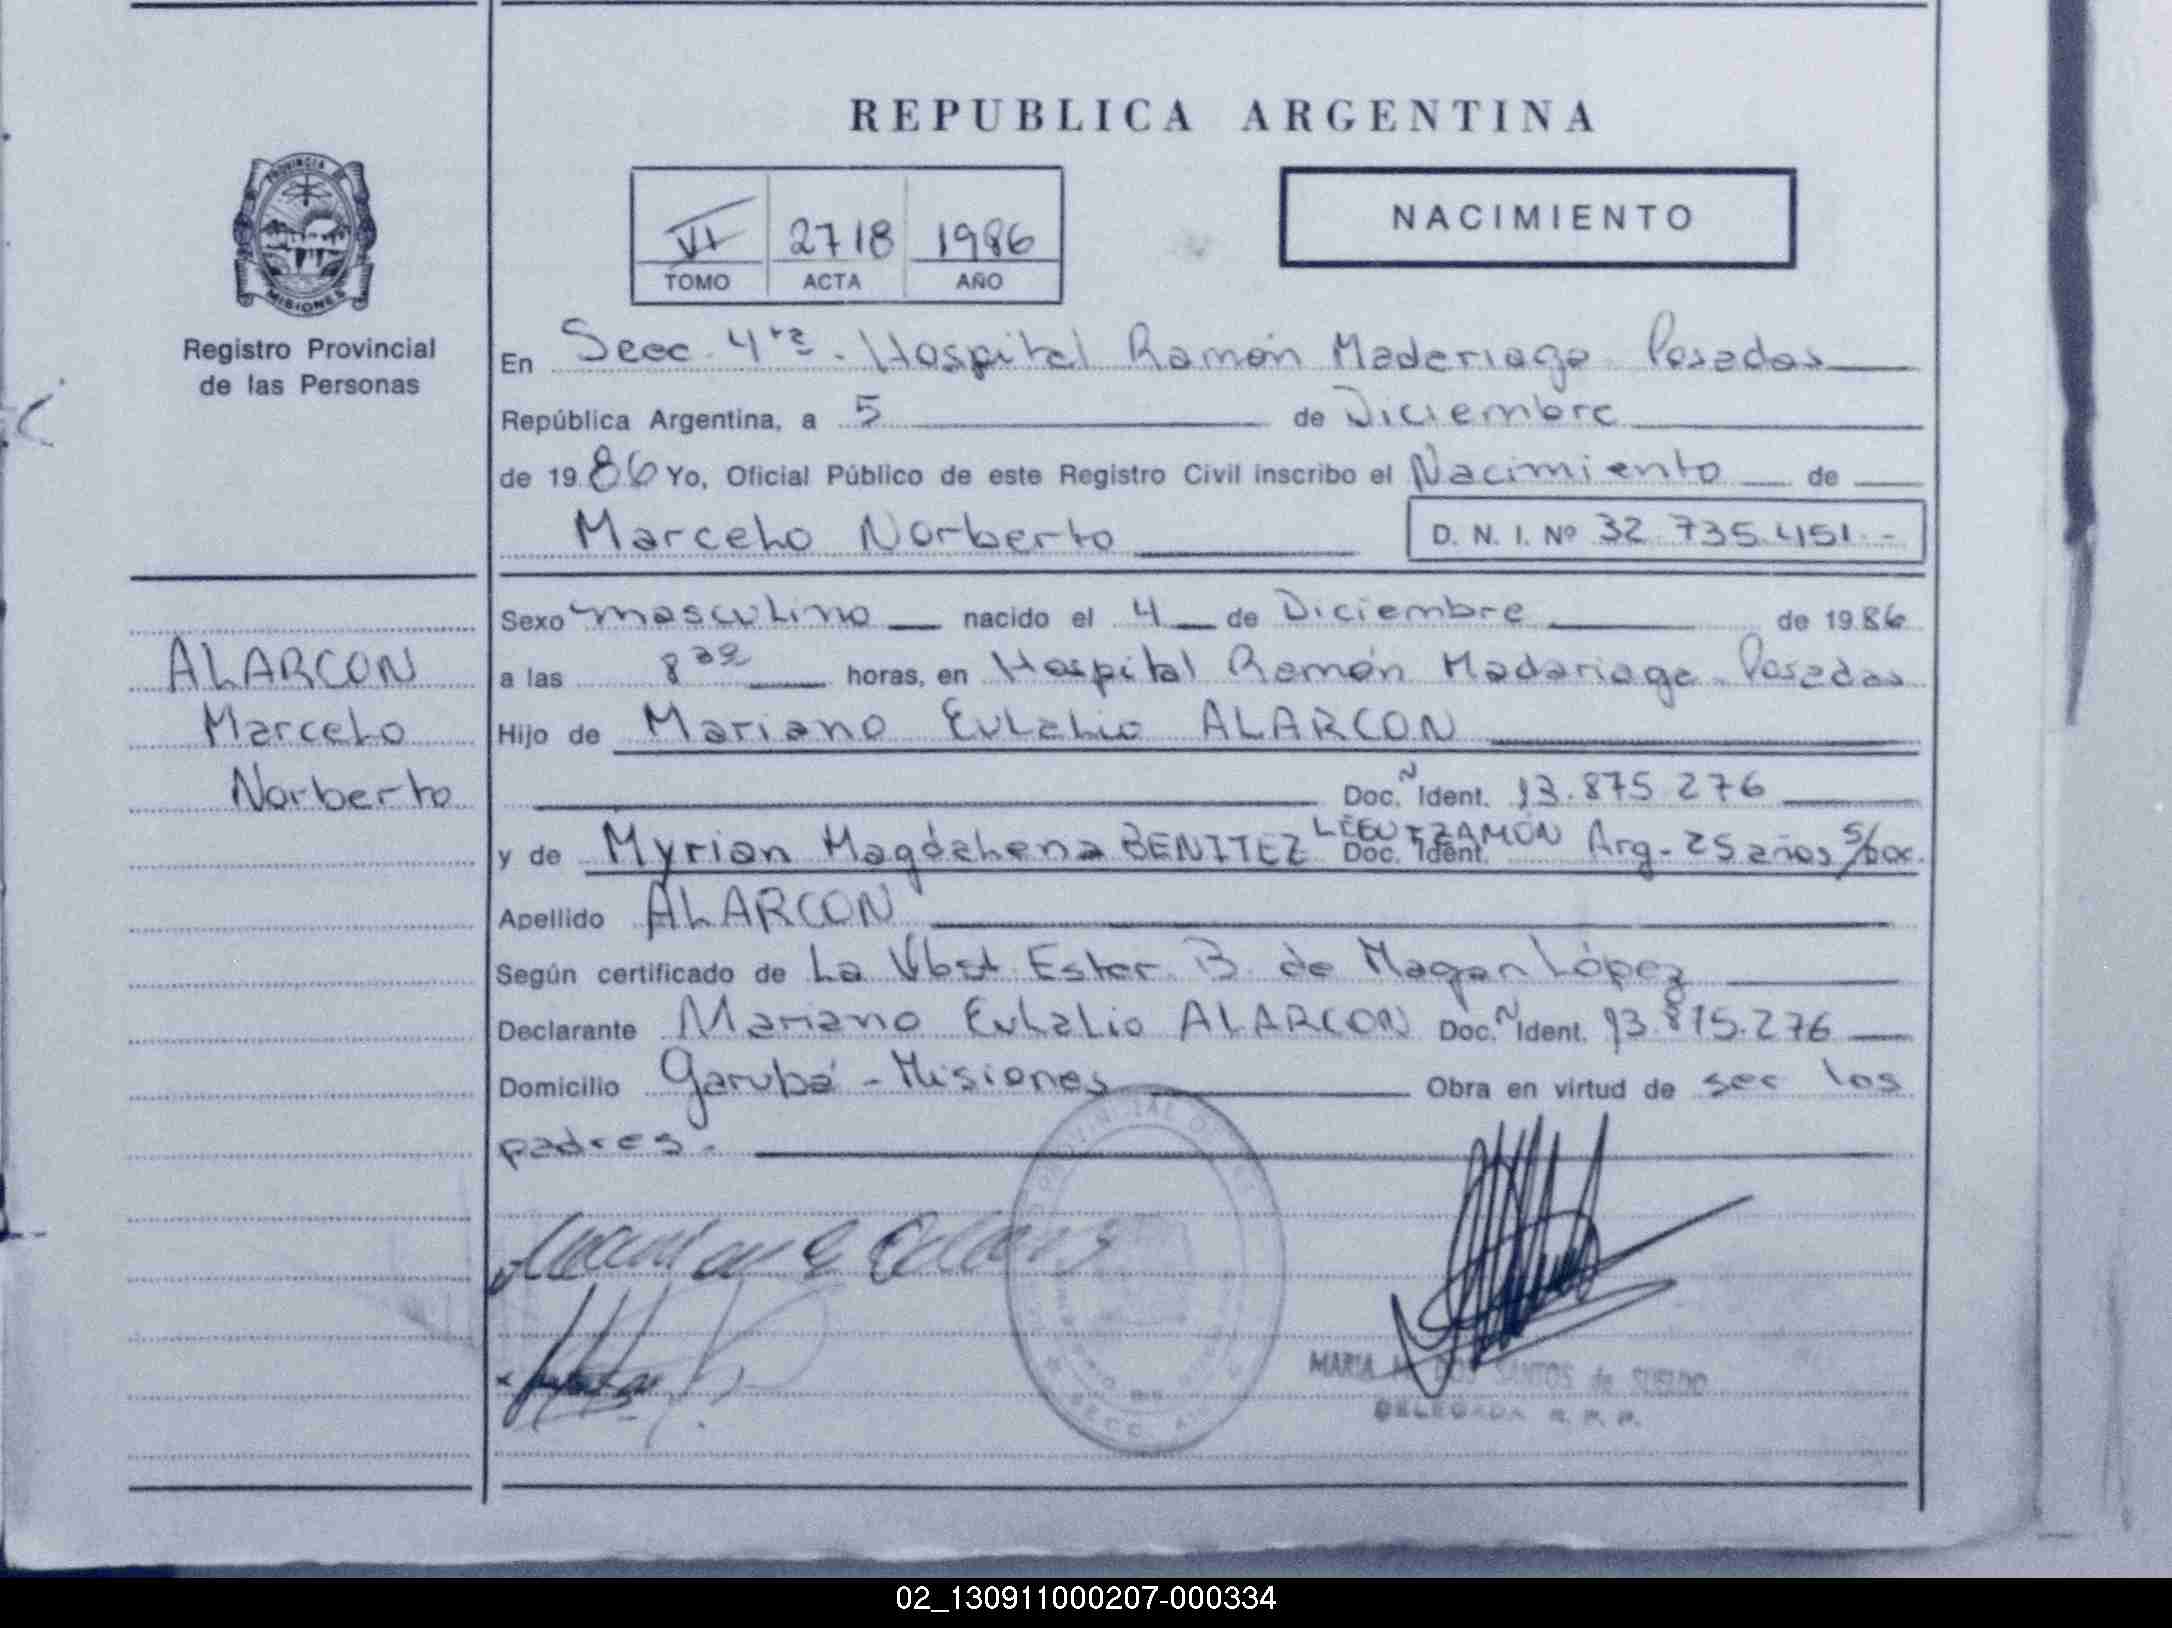 REPUBLICA ARGENTINA
PROVINCIA
MISIONES
Registro Provincial
de las Personas
VI 2718 1986
TOMO ACTA AÑO
NACIMIENTO
En Secc. 4ta. Hospital Ramón Maderiaga Posadas
República Argentina, a 5 de Diciembre
de 1986 Yo, Oficial Público de este Registro Civil inscribo el Nacimiento de
Marcelo Norberto D. N. I. Nº 32.735.451.-
ALARCON
Marcelo
Norberto
Sexo masculino nacido el 4 de Diciembre de 1986
a las 8 horas, en Hospital Ramón Madariaga - Posadas
Hijo de Mariano Eulalio ALARCON
Doc. N Ident. 13.875.276
y de Myrian Magdalena BENITEZ LEGUIZAMÓN Doc. Ident. Arg- 25 años s/Doc.
Apellido ALARCON
Según certificado de La Obst. Ester B. de Magan López
Declarante Mariano Eulalio ALARCON Doc. N Ident. 13.875.276
Domicilio Garubá - Misiones Obra en virtud de ser los
padres.
MARIA DOS SANTOS de SUELDO
DELEGADA R. P. P.
02_130911000207-000334